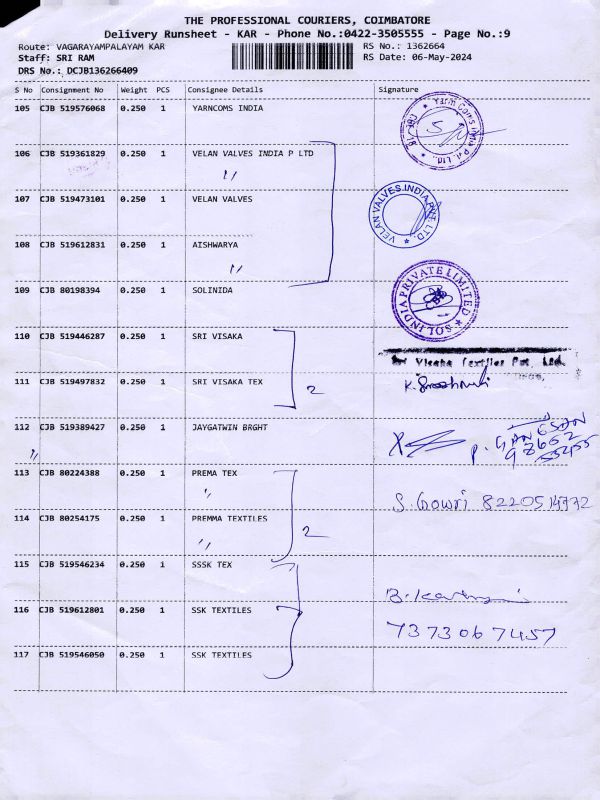 THE PROFESSIONAL COURIERS, COIMBATORE
Delivery Runsheet - KAR - Phone No.:0422-3505555 - Page No.:9
Route: VAGARAYAMPALAYAM KAR RS No.: 1362664
Staff: SRI RAM RS Date: 06-May-2024
DRS No.: DCJB136266409
S No Consignment No Weight PCS Consignee Details Signature
105 CJB 519576068 0.250 1 YARNCOMS INDIA
Yarn Coms India Pvt. Ltd.
106 CJB 519361829 0.250 1 VELAN VALVES INDIA P LTD
107 CJB 519473101 0.250 1 VELAN VALVES
VELAN VALVES INDIA PVT. LTD
108 CJB 519612831 0.250 1 AISHWARYA
109 CJB 80198394 0.250 1 SOLINIDA
SOL INDIA PRIVATE LIMITED
110 CJB 519446287 0.250 1 SRI VISAKA
Sri Visaka Textiles Pvt. Ltd.
111 CJB 519497832 0.250 1 SRI VISAKA TEX
2
112 CJB 519389427 0.250 1 JAYGATWIN BRGHT
P. GANESAN
113 CJB 80224388 0.250 1 PREMA TEX
S. Gowri
114 CJB 80254175 0.250 1 PREMMA TEXTILES
2
115 CJB 519546234 0.250 1 SSSK TEX
116 CJB 519612801 0.250 1 SSK TEXTILES
7373067457
117 CJB 519546050 0.250 1 SSK TEXTILES